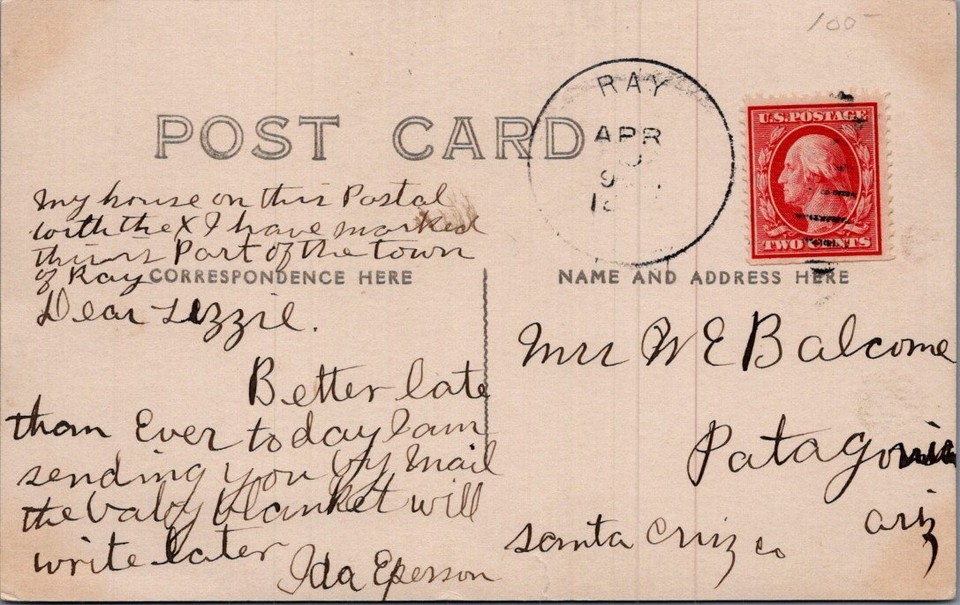 100-
RAY
APR
9
U.S. POSTAGE
TWO CENTS
POST CARD
my house on this Postal
with the X I have marked
this is Part of the town
of Ray
CORRESPONDENCE HERE
Dear Lizzie.
Better late
than Ever today I am
sending you by mail
the baby blanket will
write later
Ida Eperson
NAME AND ADDRESS HERE
Mrs W E Balcome
Patagonia
Ariz
Santa Cruz co